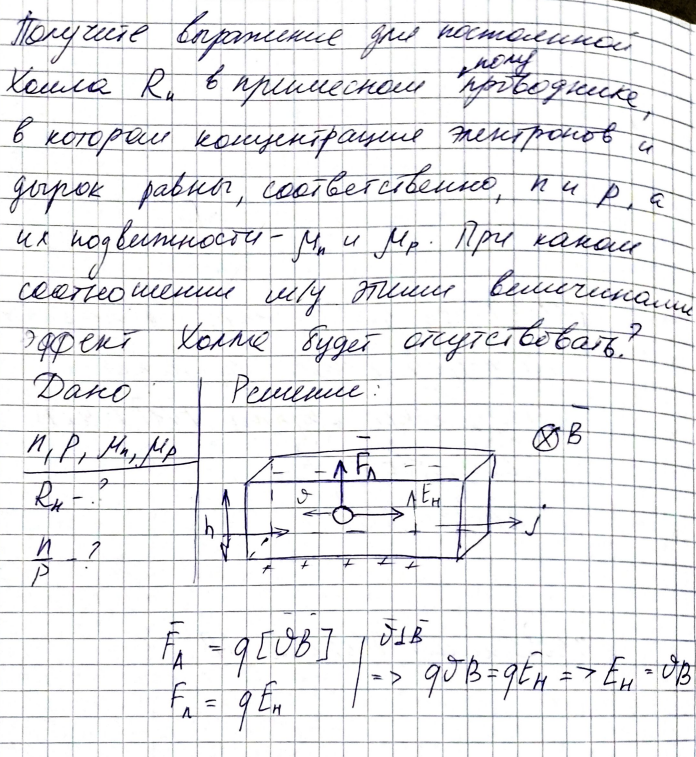 Получите выражение для постоянной
Холла Rн в примесном полупроводнике,
в котором концентрации электронов и
дырок равны, соответственно, n и p, а
их подвижности - μn и μp. При каком
соотношении м/у этими величинами
эффект Холла будет отсутствовать?
Дано Решение:
n, p, μn, μp
Rн - ?
n/p - ?
⊗ B̄
F̄л
ϑ
Eн
h
j
- - - - -
+ + + + +
F̄л = q[ϑ̄B̄] | ϑ̄⊥B̄
Fл = qEн | => qϑB = qEн => Eн = ϑB